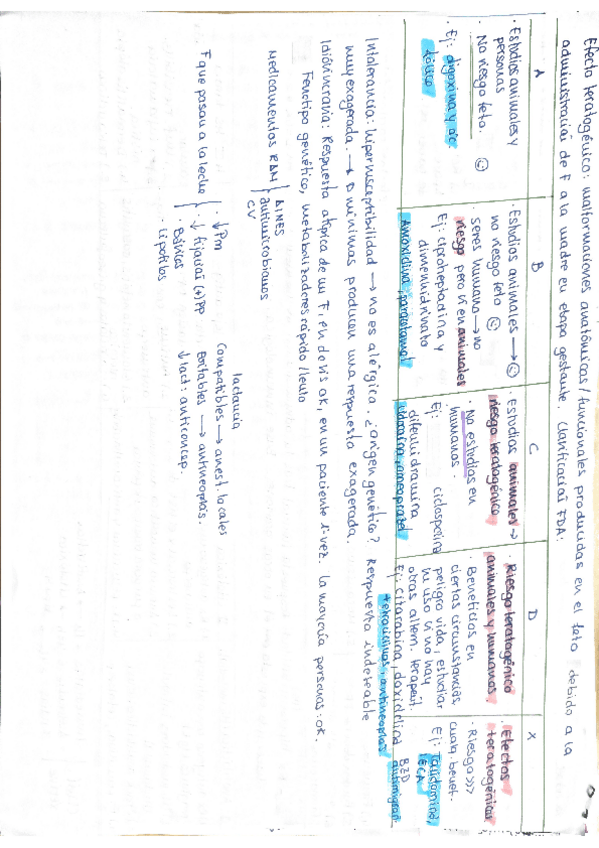 Efecto teratogénico: malformaciones anatómicas/funcionales producidas en el feto debido a la
administración de F a la madre en etapa gestante. Clasificación FDA:
A
· Estudios animales y
personas
· No riesgo feto.
· Ej: digoxina y ác.
fólico
B
· Estudios animales →
no riesgo feto
· seres humanos → no
riesgo pero sí en animales
Ej: ciproheptadina y
dimenhidrinato
Amoxicilina, paracetamol
C
· Estudios animales →
riesgo teratogénico
· No estudios en
humanos.
Ej: ciclosporina
difenhidramina
omeprazol
D
· Riesgo teratogénico
animales y humanos.
· Beneficios en
ciertas circunstancias
peligro vida, estudiar
su uso si no hay
otras altern. terapéut.
Ej: Citarabina, doxiciclina
tetraciclinas, antineoplas
X
· Efectos
teratogénicos
· Riesgo >>>
cualq. benef.
Ej: Talidomina,
ECA
BZD
antimigrañ.
Intolerancia: hipersusceptibilidad → no es alérgica. ¿origen genético? Respuesta indeseable
muy exagerada. → D mínimas producen una respuesta exagerada.
Idiosincrasia: Respuesta atípica de un F, en dosis ok, en un paciente 1ª vez. La mayoría personas: ok.
Fenotipo genético, metabolizadores rápido/lento
Medicamentos RAM
AINES
antimicrobianos
CV
F que pasan a la leche
· ↓Pm
· ↓ fijación (+) pp
· Básicos
· Lipofílos
lactancia
Compatibles → anest. locales
Evitables → antineoplas.
↓lact: anticoncep.